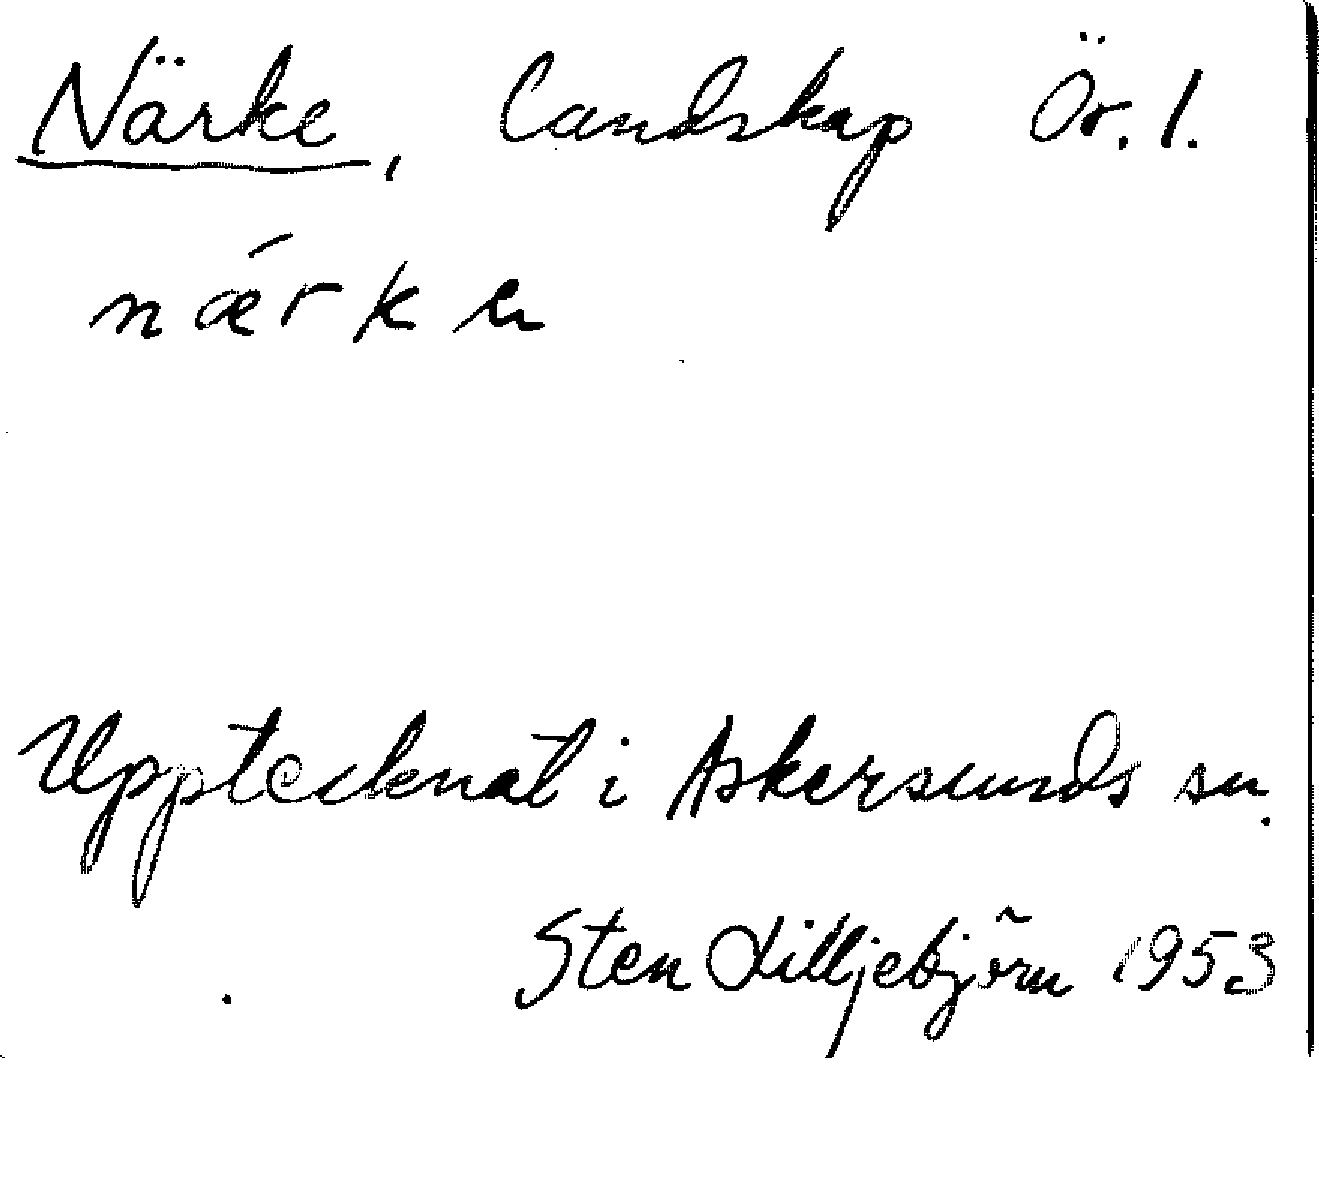 Närke, landskap Ör. l.
nǽrkə
Upptecknat i Askersunds sn.
Sten Lilljebjörn 1953